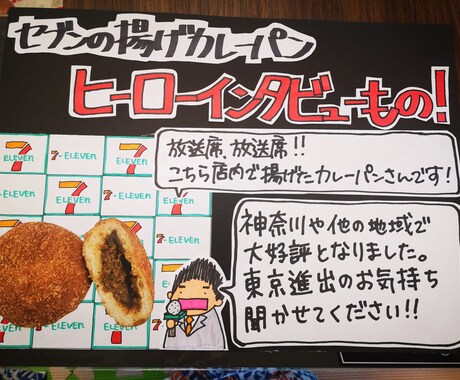 セブンの揚げカレーパン
ヒーローインタビューもの!
放送席、放送席!!
こちら店内で揚げたカレーパンさんです!
神奈川や他の地域で
大好評となりました。
東京進出のお気持ち
聞かせてください!!
7 ELEVEN
7-ELEVEN
7 ELEVEN
7-ELEVEN
7 ELEVEN
7-ELEVEN
7 ELEVEN
7-ELEVEN
7 ELEVEN